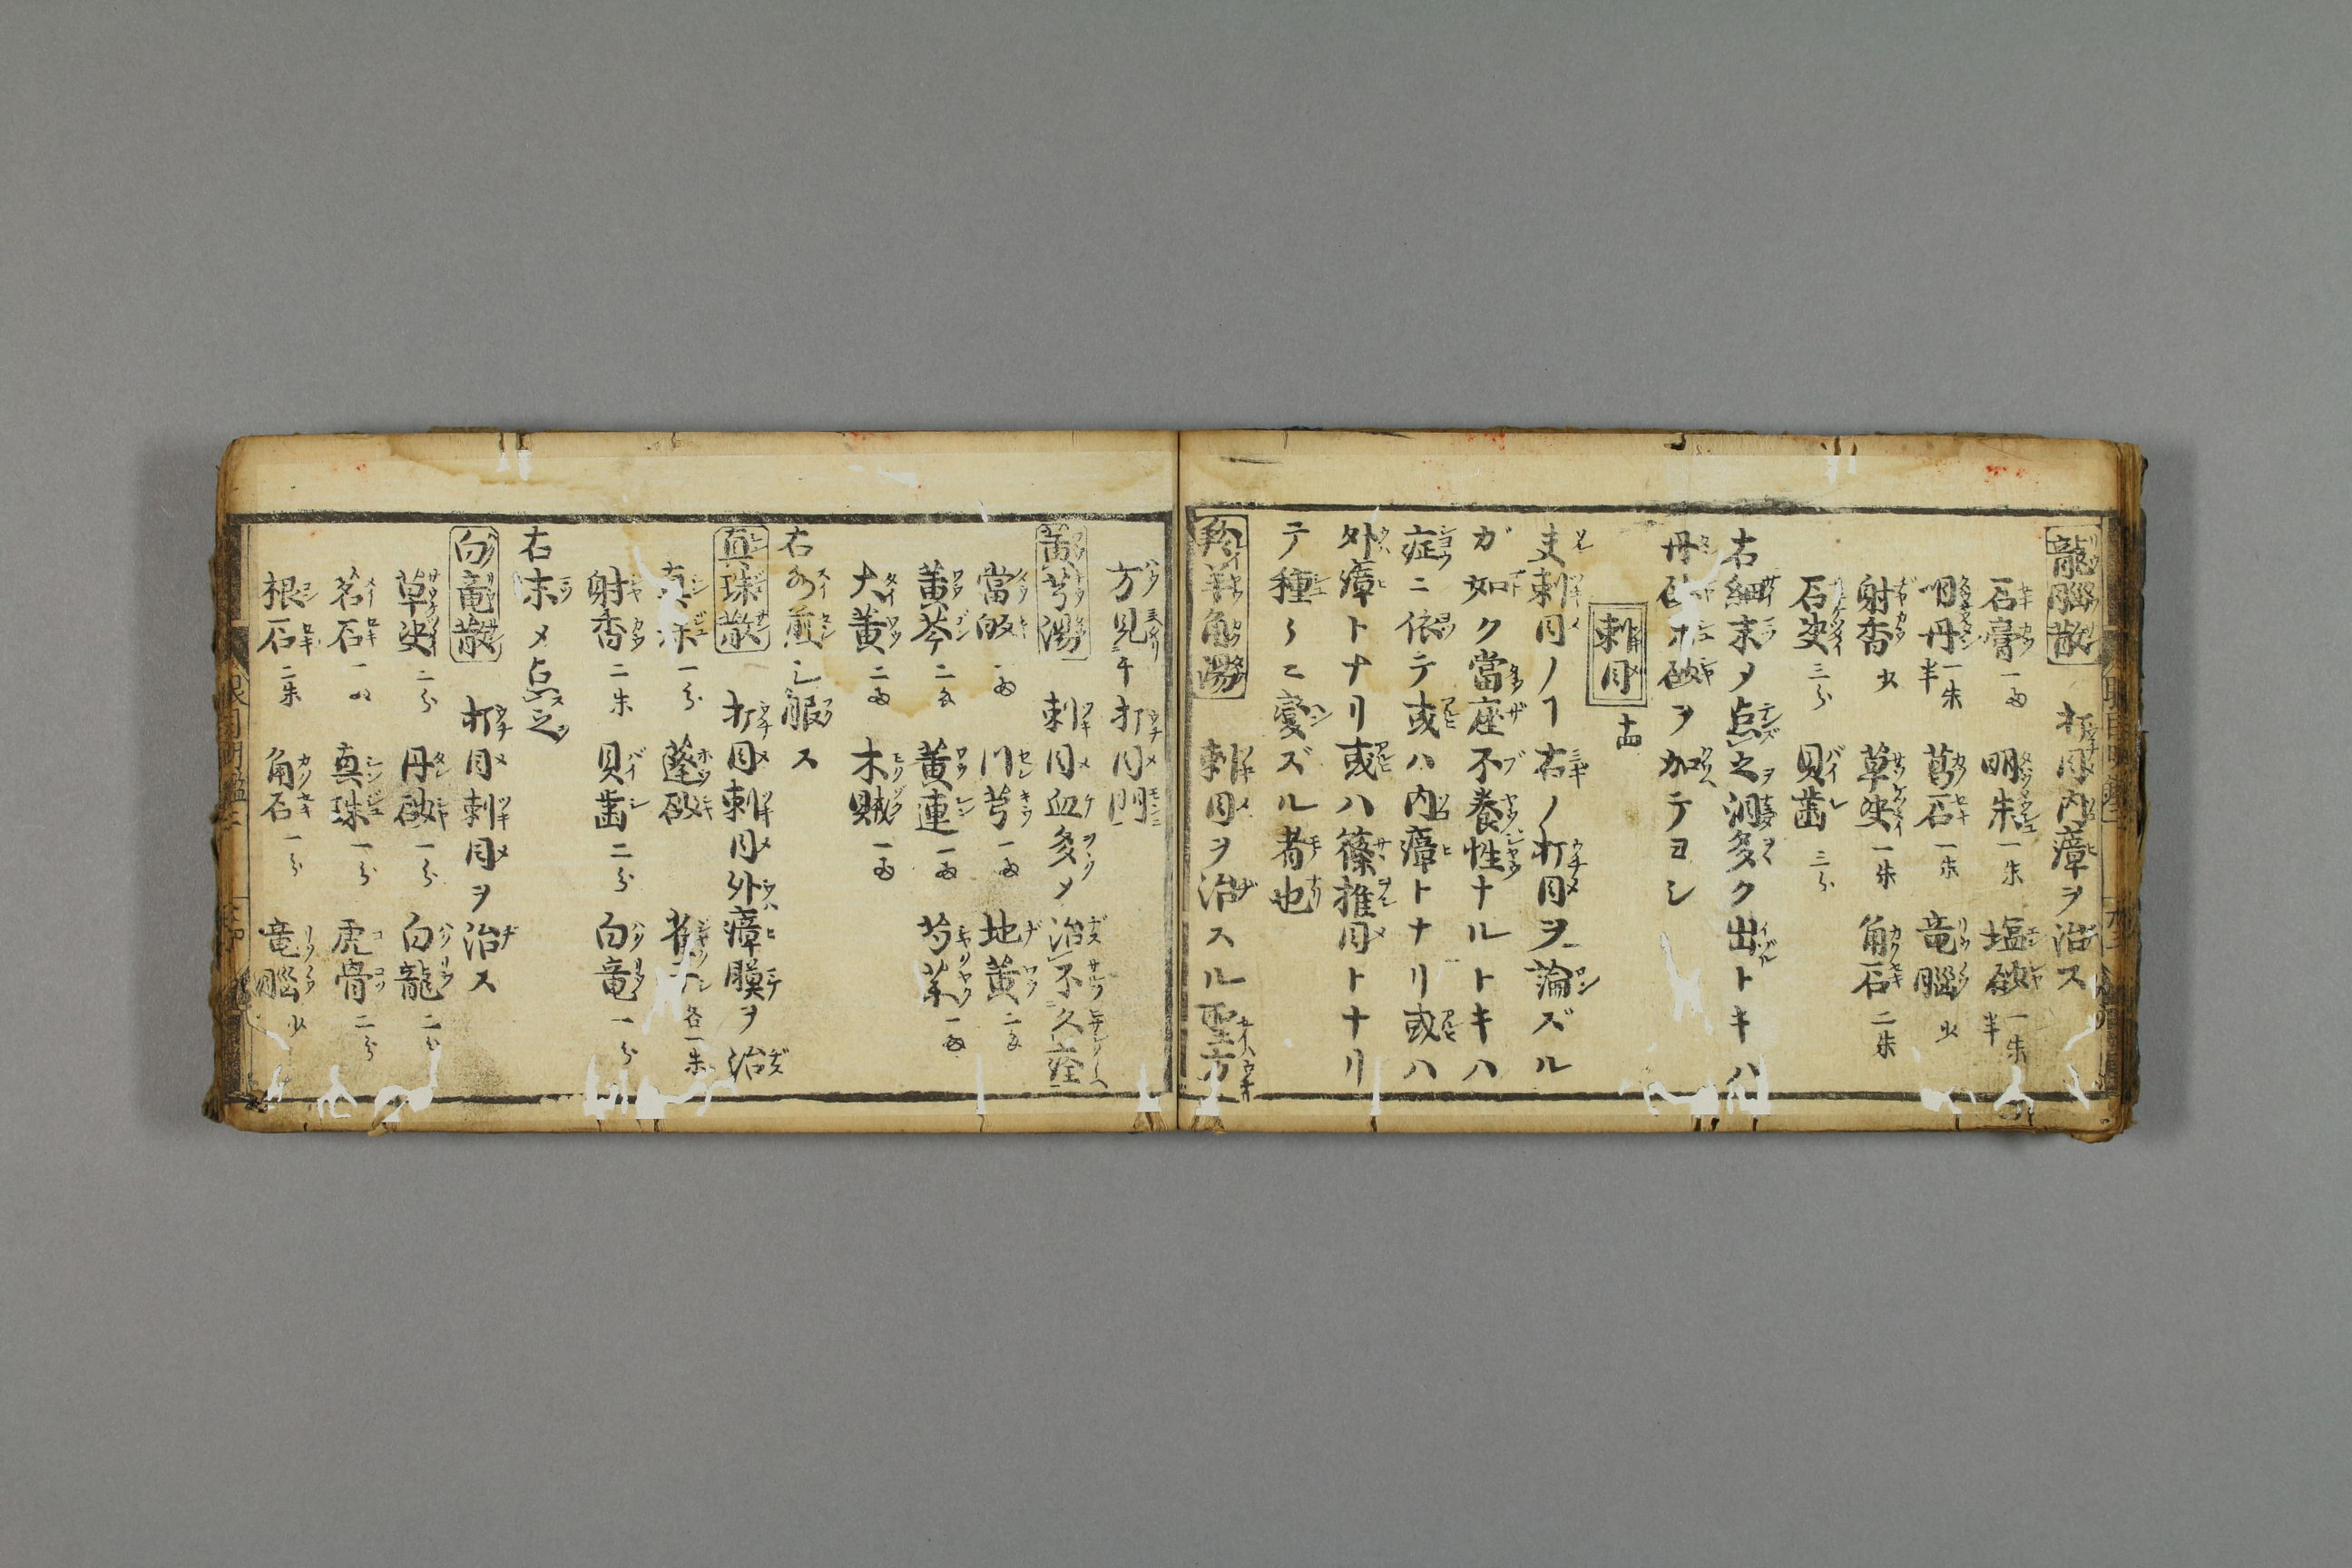 龍腦散 打目内瘴ヲ治ス
石膏一両 明朱一朱 塩砂一朱半
明丹一朱半 葛石一朱 竜腦少
射香少 草決一朱 角石二朱
石决三分 貝歯三分
右細末メ点之泪多ク出トキハ
丹 砂ヲ加テヨシ
刺目 十四
夫刺目ノヿ右ノ打目ヲ論ズル
ガ如ク當座不養性ナルトキハ
症ニ依テ或ハ内瘴トナリ或ハ
外瘴トナリ或ハ篠推目トナリ
テ種〻ニ変ズル者也
羚羊角湯 刺目ヲ治スル聖方
方見于打目門
黄芎湯 刺目血多メ治不久痊
當皈一両 川芎一両 地黄二両
黄芩二両 黄連一両 芍薬一両
大黄二両 木賊一両
右水煎シ服ス
真珠散 打目刺目外瘴膜ヲ治
真珠一分 蓬砂 各一朱
射香二朱 貝歯二分 白竜一分
右末メ点之
白竜散 打目刺目ヲ治ス
草决二分 丹砂一分 白龍
茗石一 真珠一分 虎骨二分
根石二朱 角石一分 竜腦少